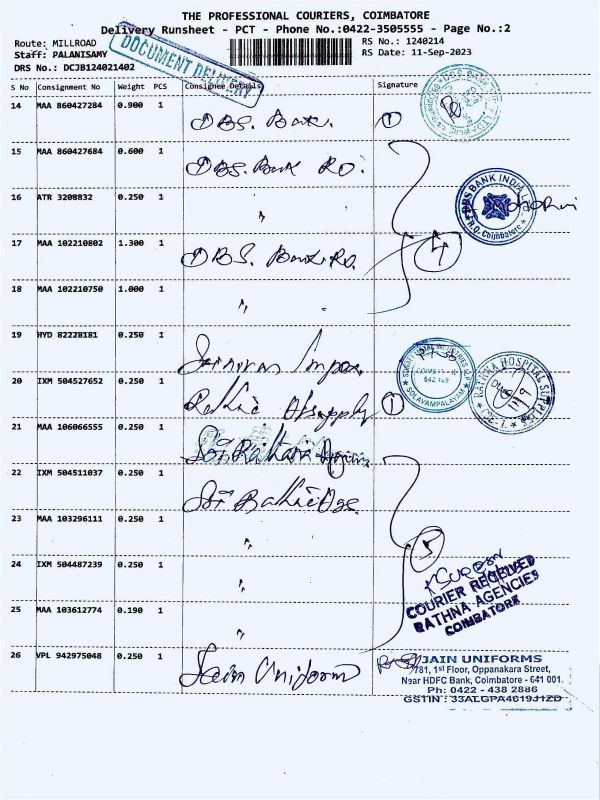 THE PROFESSIONAL COURIERS, COIMBATORE
Delivery Runsheet - PCT - Phone No.:0422-3505555 - Page No.:2
Route: MILLROAD
RS No.: 1240214
Staff: PALANISAMY
RS Date: 11-Sep-2023
DRS No.: DCJB124021402
DOCUMENT DELIVERY
S No Consignment No Weight PCS Consignee Details Signature
14 MAA 860427284 0.900 1 DBS. Bank. 1
15 MAA 860427684 0.600 1 DBS. Bank RO.
16 ATR 3208832 0.250 1 "
DBS BANK INDIA
R.O. Coimbatore
17 MAA 102210802 1.300 1 DBS. Bank RO. 4
18 MAA 102210750 1.000 1 "
19 HYD 82228181 0.250 1
20 IXM 504527652 0.250 1 1
SOLAVAMPALAYAM
RATHNA HOSPITAL SUPPLIES
21 MAA 106066555 0.250 1
22 IXM 504511037 0.250 1
23 MAA 103296111 0.250 1 " 5
24 IXM 504487239 0.250 1 "
COURIER RECEIVED
RATHNA AGENCIES
COIMBATORE
25 MAA 103612774 0.190 1 "
26 VPL 942975048 0.250 1 Jain Uniform
JAIN UNIFORMS
781, 1st Floor, Oppanakara Street,
Near HDFC Bank, Coimbatore - 641 001.
Ph: 0422 - 438 2886
GSTIN : 33ALGPA4619J1ZD